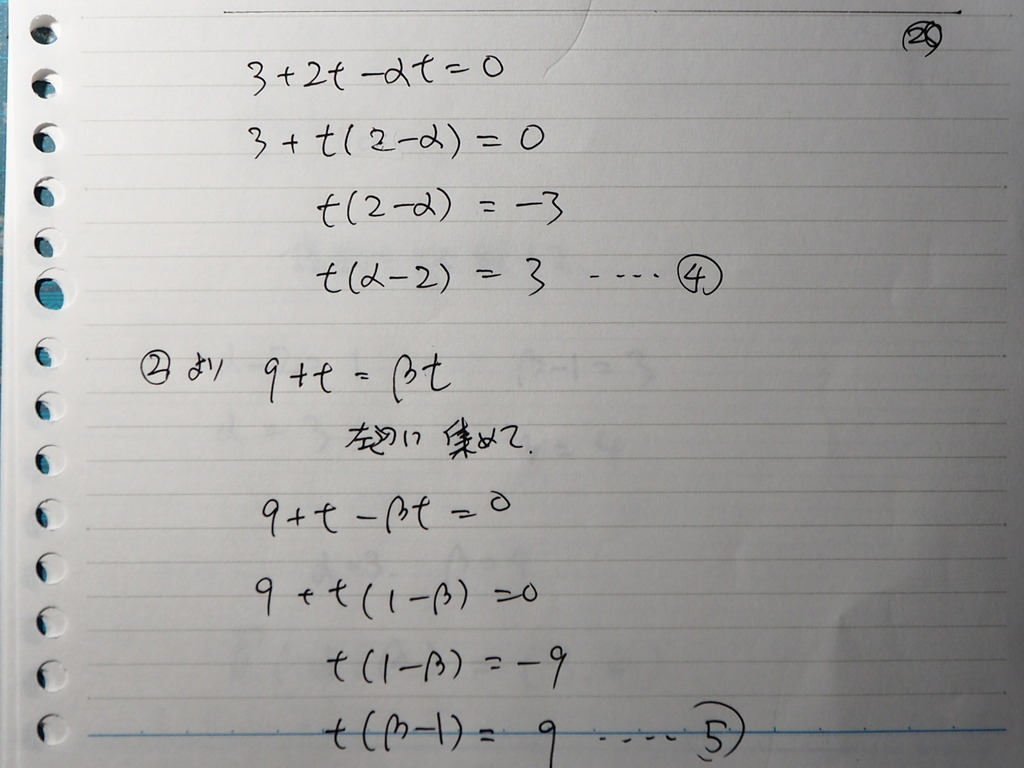 3+2t-αt=0
3+t(2-α)=0
t(2-α)=-3
t(α-2)=3 ---- ④
②より 9+t=βt
左辺に集めて.
9+t-βt=0
9+t(1-β)=0
t(1-β)=-9
t(β-1)=9 ---- ⑤